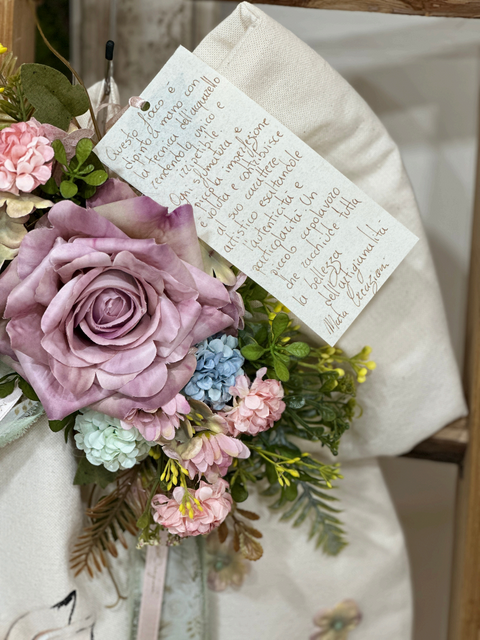 Questo fiocco è
dipinto a mano con
la tecnica dell'acquarello
rendendolo unico e
irripetibile.
Ogni sfumatura e
piccola imperfezione
è voluta e contribuisce
al suo carattere
artistico esaltandole
l'autenticità e
particolarità. Un
piccolo capolavoro
che racchiude tutta
la bellezza
dell'artigianalità.
Creazioni